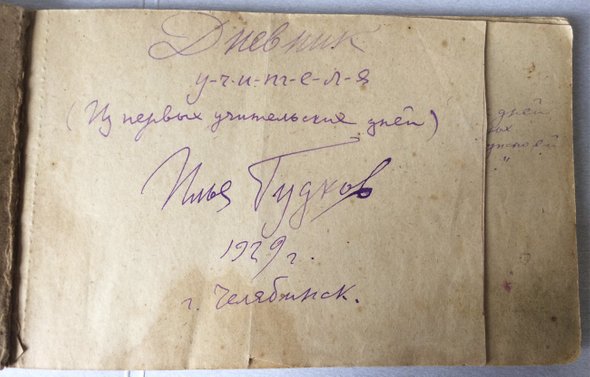 Дневник
у-ч-и-т-е-л-я
(Из первых учительских дней)
Илья Гудков
1929 г.
г. Челябинск.
дней